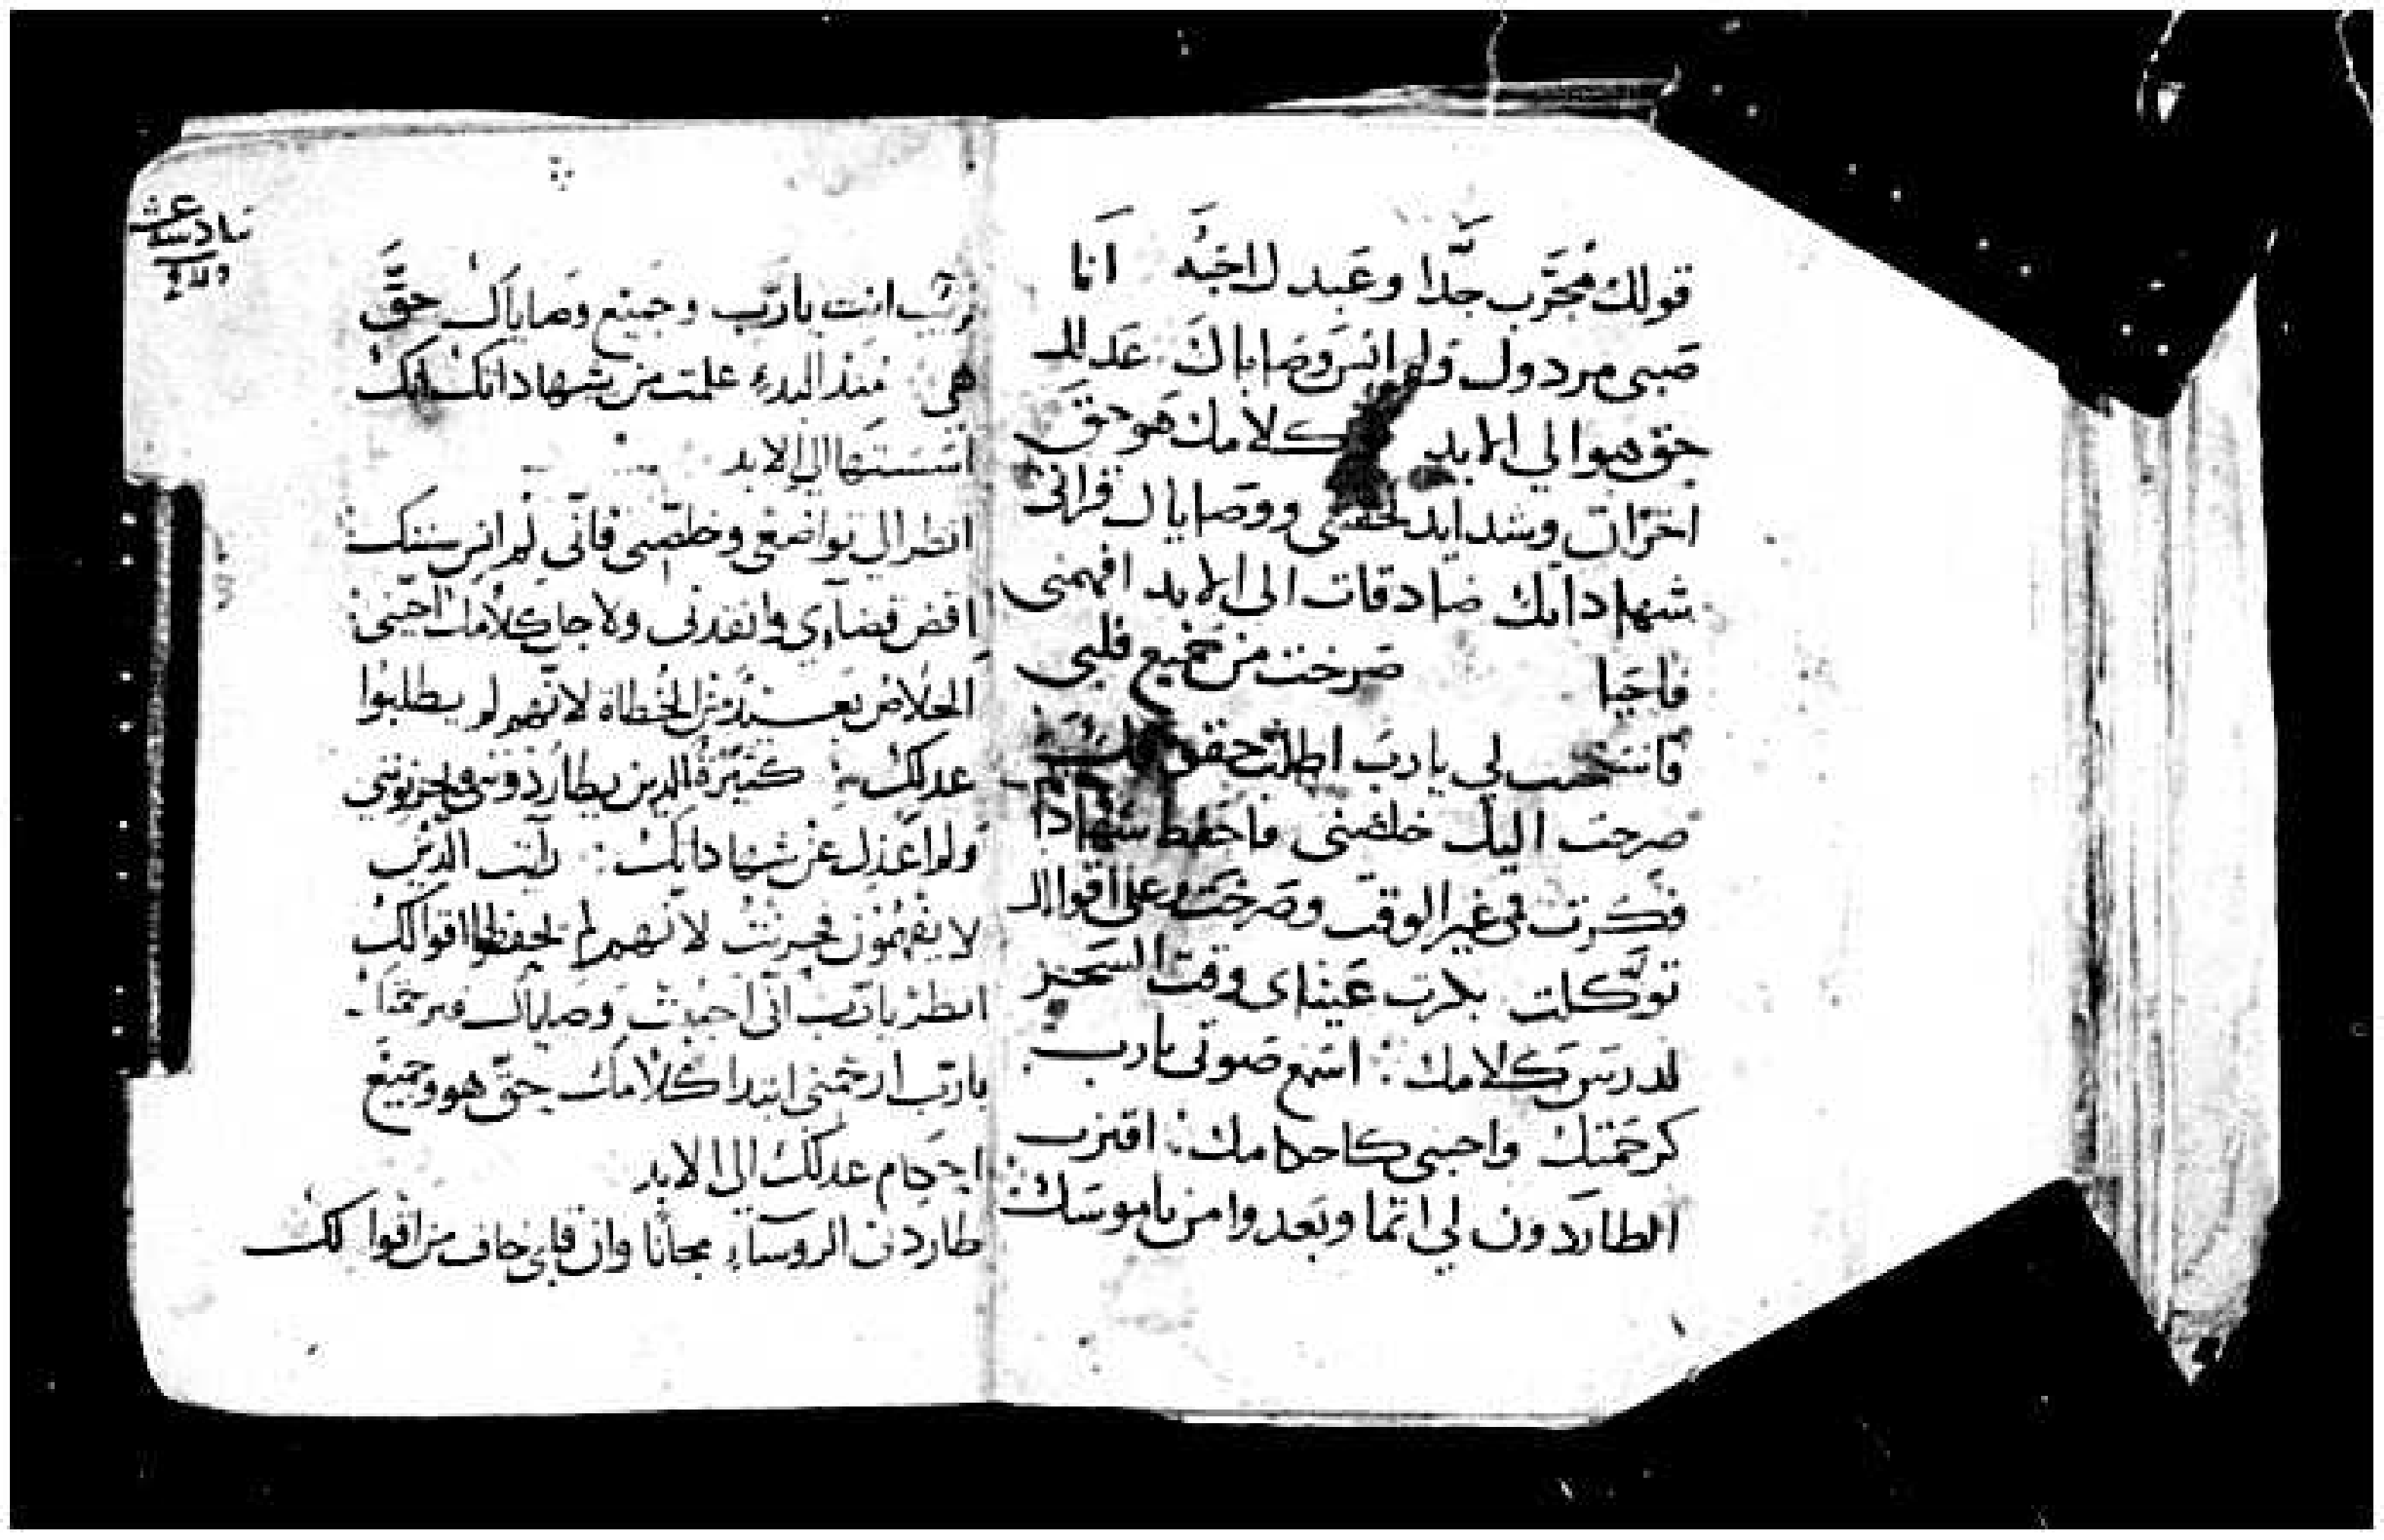 قولك مُجَرَّب جدًّا وعَبدك احَبَّه انا
صَبي مردول ولم انسَ وصَاياك عَدلك
حق هو الي الابد كلامك هَو حقَ
احزان وشدايد لحقتني ووصَاياك قراتي
شهاداتك صَادقات الى الابد افهمني
فاحَيا صَرخت من جَميع قلبي
فاستجب لي يا ربَ اطلب حقوقك
صرخت اليك خلصني فاحفظ شهادا
فكَرت في غير الوقت وصَرخت وعلى اقوالك
توَّكلت بكرت عَيناي وقت السَحر
لدرسَ كلامك اسَمع صَوتي يارب
كرحَمتك واحيني كاحكامك اقترب
الطارَدون لي اثما وبَعدوا من ناموسَك
قرَيب انت يا رَب وجَميع وصَاياك حقَّ
هي منذ البدء علمت من شهاداتك انك
اسَسَتها الي الابد
انظر الي تواضعي وخلصَني فاني لم انس سننك
اقض قضآءي وانقدني ولاجل كلامك احَيني
الخلاص بَعيد من الخُطاة لانهم لم يطلبوا
عدلك كثيَرةُ الدين يطارَدوني ويحزنوني
ولم اعَدل عن شهاداتك رآيت الدين
لا يفهمَون فحزنتُ لانهم لم يحفظوا اقوالك
انظر يا رَب اني احَببت وصَاياك فبرحَمتك
يا رَب ارحَمني ابتدا كلامك حَق هو وجَميع
احَكام عدلك الي الابد
طاردني الروسآء مجانا وان قلبي خاف من اقوالك